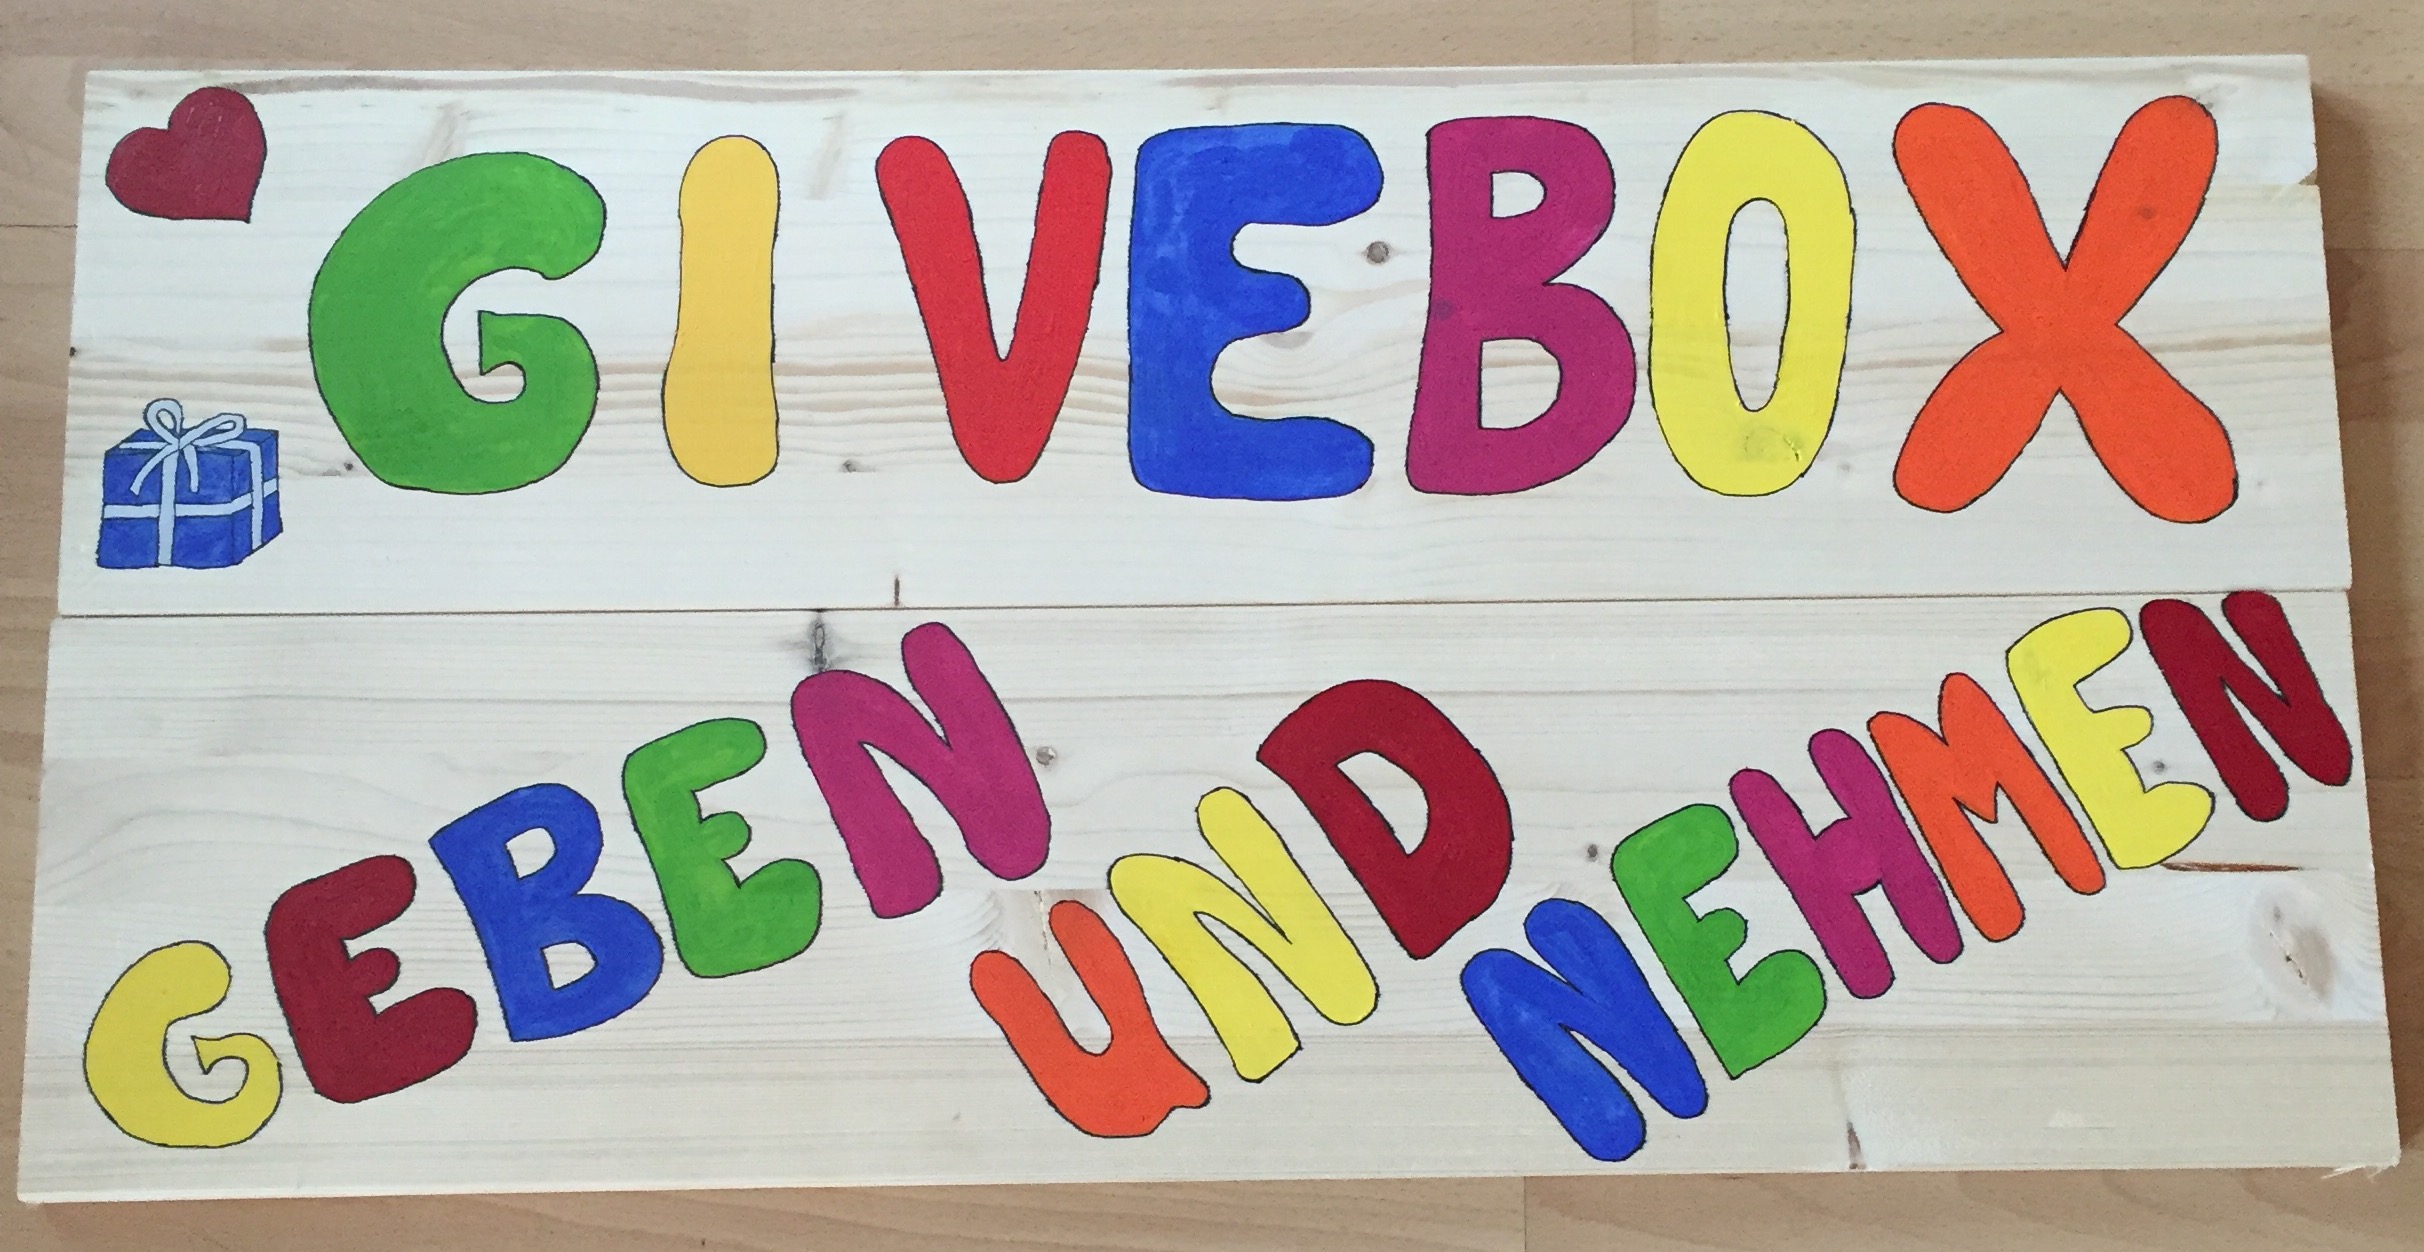 GIVEBOX
GEBEN UND NEHMEN